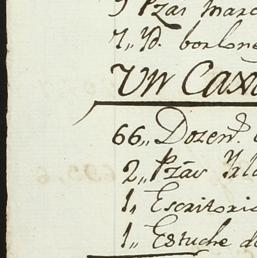 9 Pzas marc
7,, Yd. borlone
Un Caxo
66,, Dozens.
2,, Pzas
1,, Escritorio
1,, Estuche de